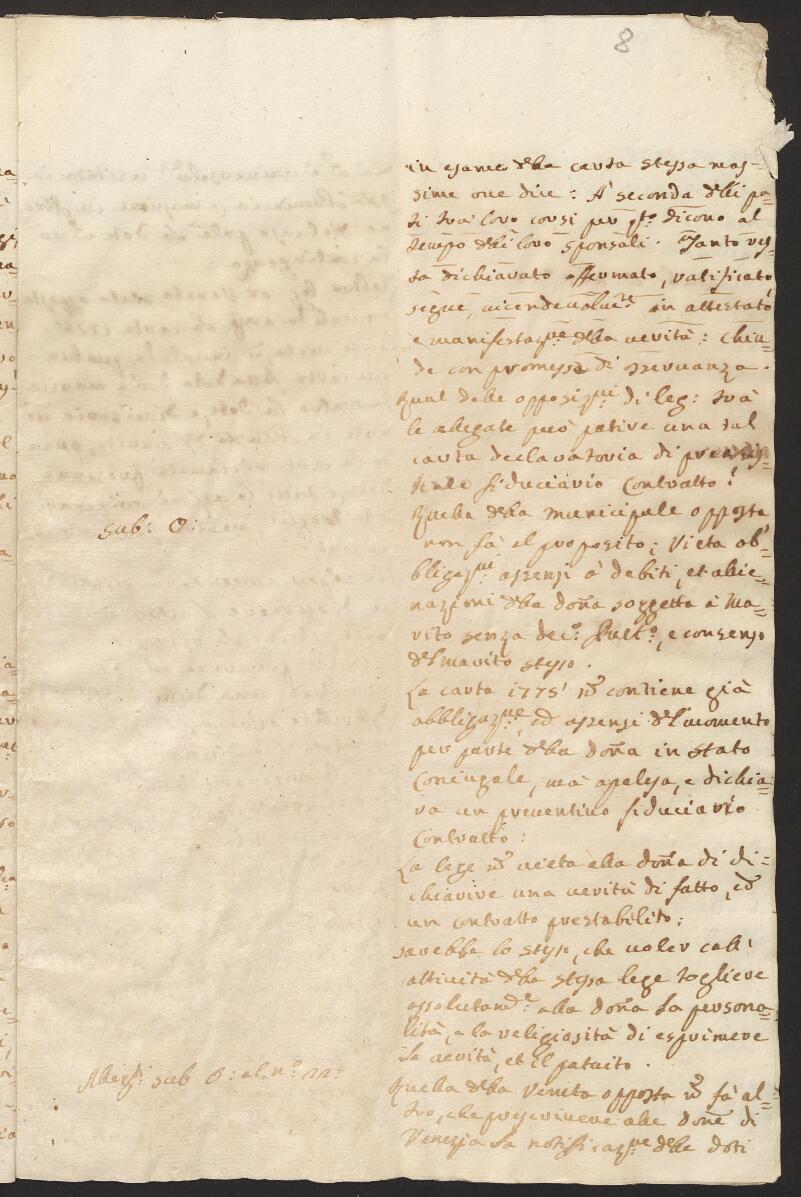 8
in esame della carta stessa mas-
sime ove dice: A seconda delli pa-
ti trà loro corsi per qto dicono al
tempo delli loro sponsali. Tanto res-
ta dichiarato affermato, ratificato
segue, vicendevolmte in attestato
e manifestazne della verità: chiu-
de con promessa di osservanza.
Qual delle opposizni di leg: trà
le allegate può patire una tal
carta declaratoria di
fiduciario Contratto?
Quella della municipale opposta
non fà al proposito; Vieta ob-
bligazni assensi à debiti, et alie-
nazioni della doña soggetta à Ma-
rito senza deco, e consenso
del marito stesso.
sub: O:
La carta 1775 nō contiene già
abbligazne, ed assensi del momento
per parte della doña in stato
Coniugale, mà apalesa, e dichia-
ra un preventivo fiduciario
Contratto:
La lege nō vieta alla doña di di-
chiarire una verità di fatto, ed
un contratto prestabilito;
sarebbe lo stesso, che voler coll'
attività della stessa lege togliere
assolutamte alla doña la persona-
lità, e la religiosità di esprimere
la verità, et il patuito.
sub O: al no 22:
Quella della Veneta opposta nō fà al-
tro, che prescrivere alle doñe di
Venezia la notificazne delle doti